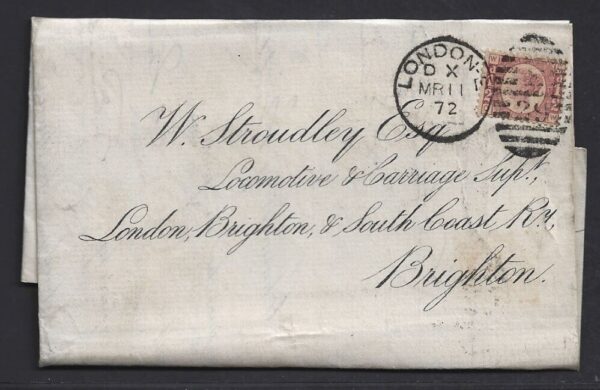 LONDON-E
DX
MR 11
72
W. Stroudley Esq
Locomotive & Carriage Supt,
London, Brighton, & South Coast Ry,
Brighton.